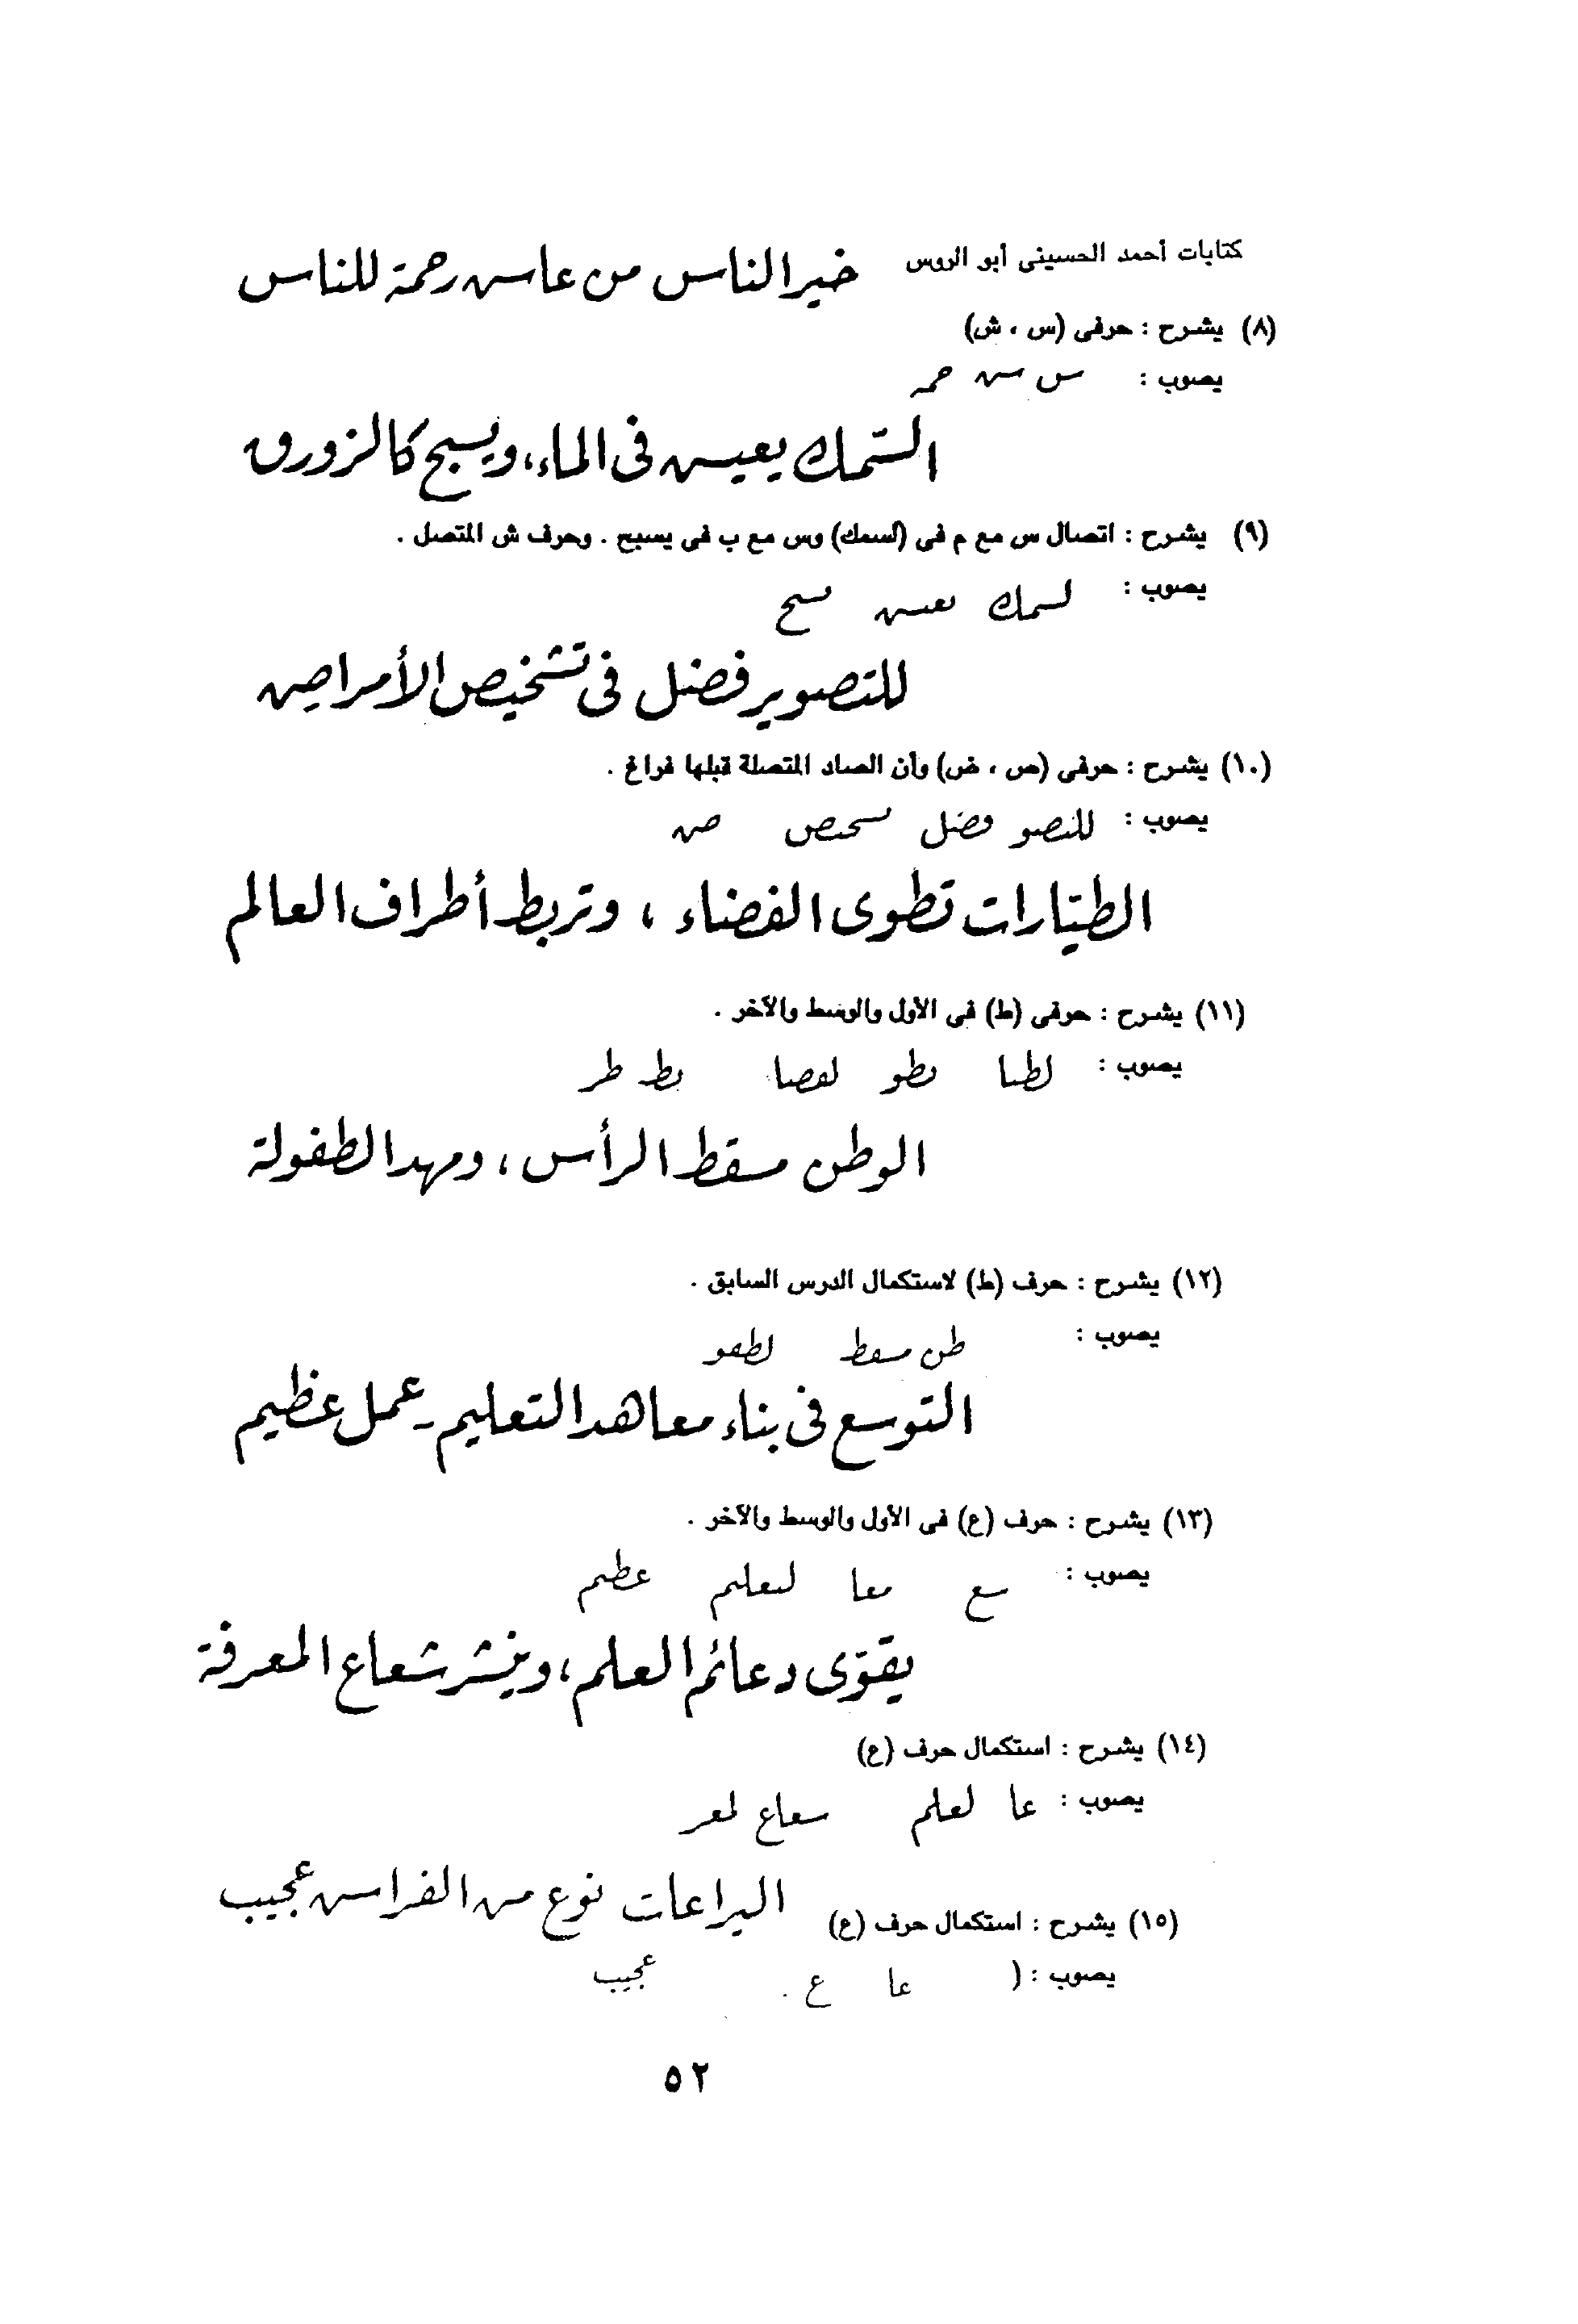 كتابات أحمد الحسينى أبو الروس خير الناس من عاش رحمة للناس
(٨) يشرح : حرفى (س ، ش)
يصوب : س س حمـ
السّمك يعيش فى الماء، ويسبح كالزورق
(٩) يشرح : اتصال س مع م فى (لسمك) وس مع ب فى يسبح . وحرف ش المتصل .
يصوب : لسمك
للتصوير فضل فى تشخيص الأمراض
(١٠) يشرح : حرفى (ص ، ض) وأن الصاد المتصلة قبلها فراغ .
يصوب :
الطيّارات تطوى الفضاء ، وتربط أطراف العالم
(١١) يشرح : حرفى (ط) فى الأول والوسط والآخر .
يصوب :
الوطن مسقط الرأس ، ومهد الطفولة
(١٢) يشرح : حرف (ط) لاستكمال الدرس السابق .
يصوب : طن
التوسع فى بناء معاهد التعليم - عمل عظيم
(١٣) يشرح : حرف (ع) فى الأول والوسط والآخر .
يصوب : سع معا
يقوّى دعائم العلم، وينشر شعاع المعرفة
(١٤) يشرح : استكمال حرف (ع)
يصوب : عا لعلم سعاع لمعر
اليراعات نوع من الفراش عجيب
(١٥) يشرح : استكمال حرف (ع)
يصوب : ( عا ع . عجيب
٥٢